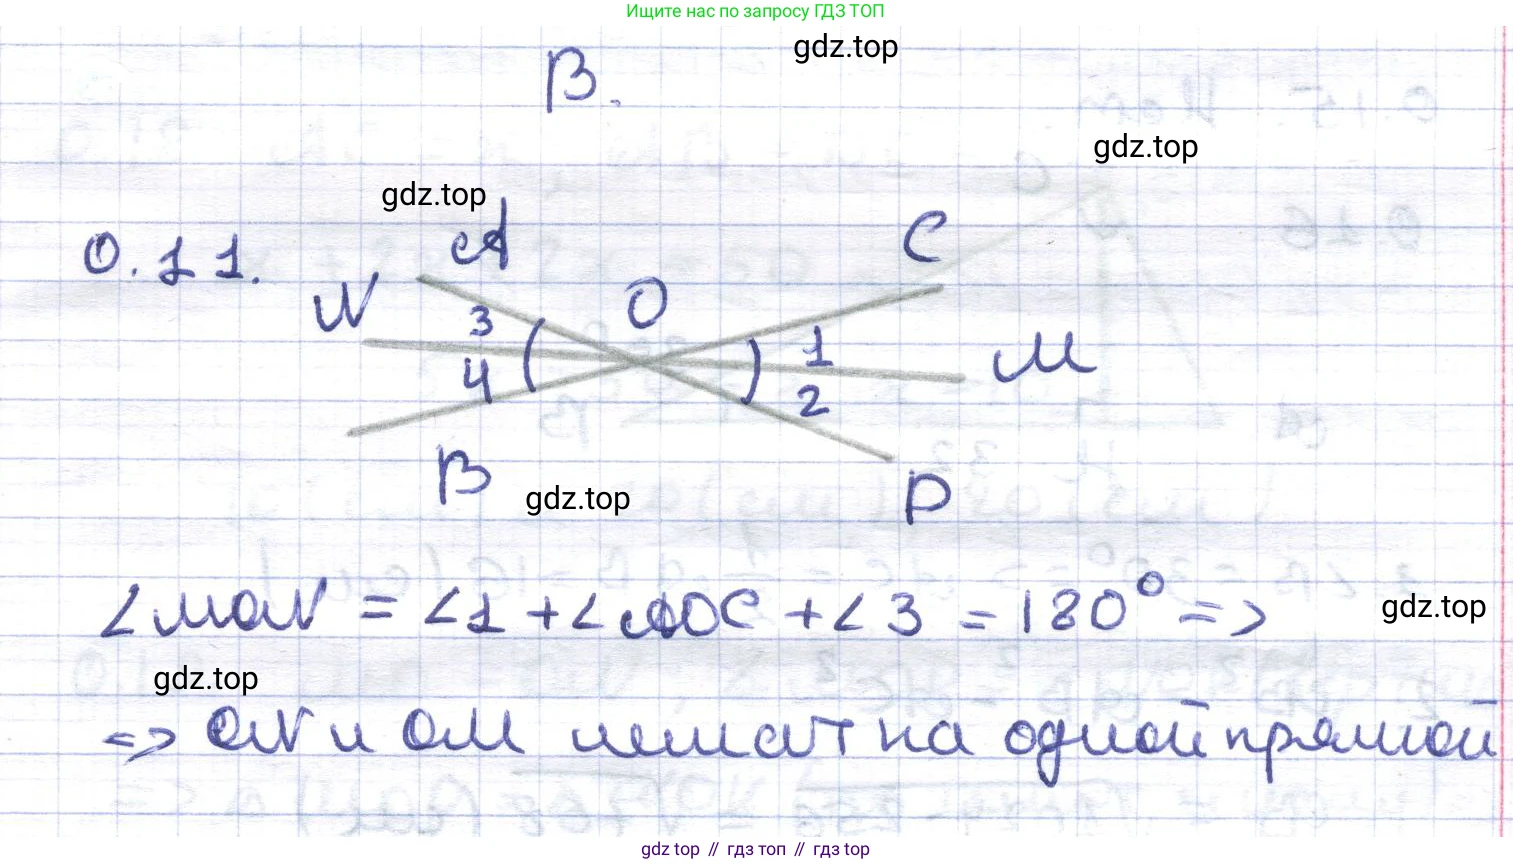 Ищите нас по запросу ГДЗ ТОП
gdz.top
В.
gdz.top
gdz.top
0.11.
A
C
N
O
3
1
M
4
2
B
P
gdz.top
∠MON = ∠1 + ∠AOC + ∠3 = 180° =>
gdz.top
gdz.top
=> ON и OM лежат на одной прямой
gdz top // гдз топ // гдз top